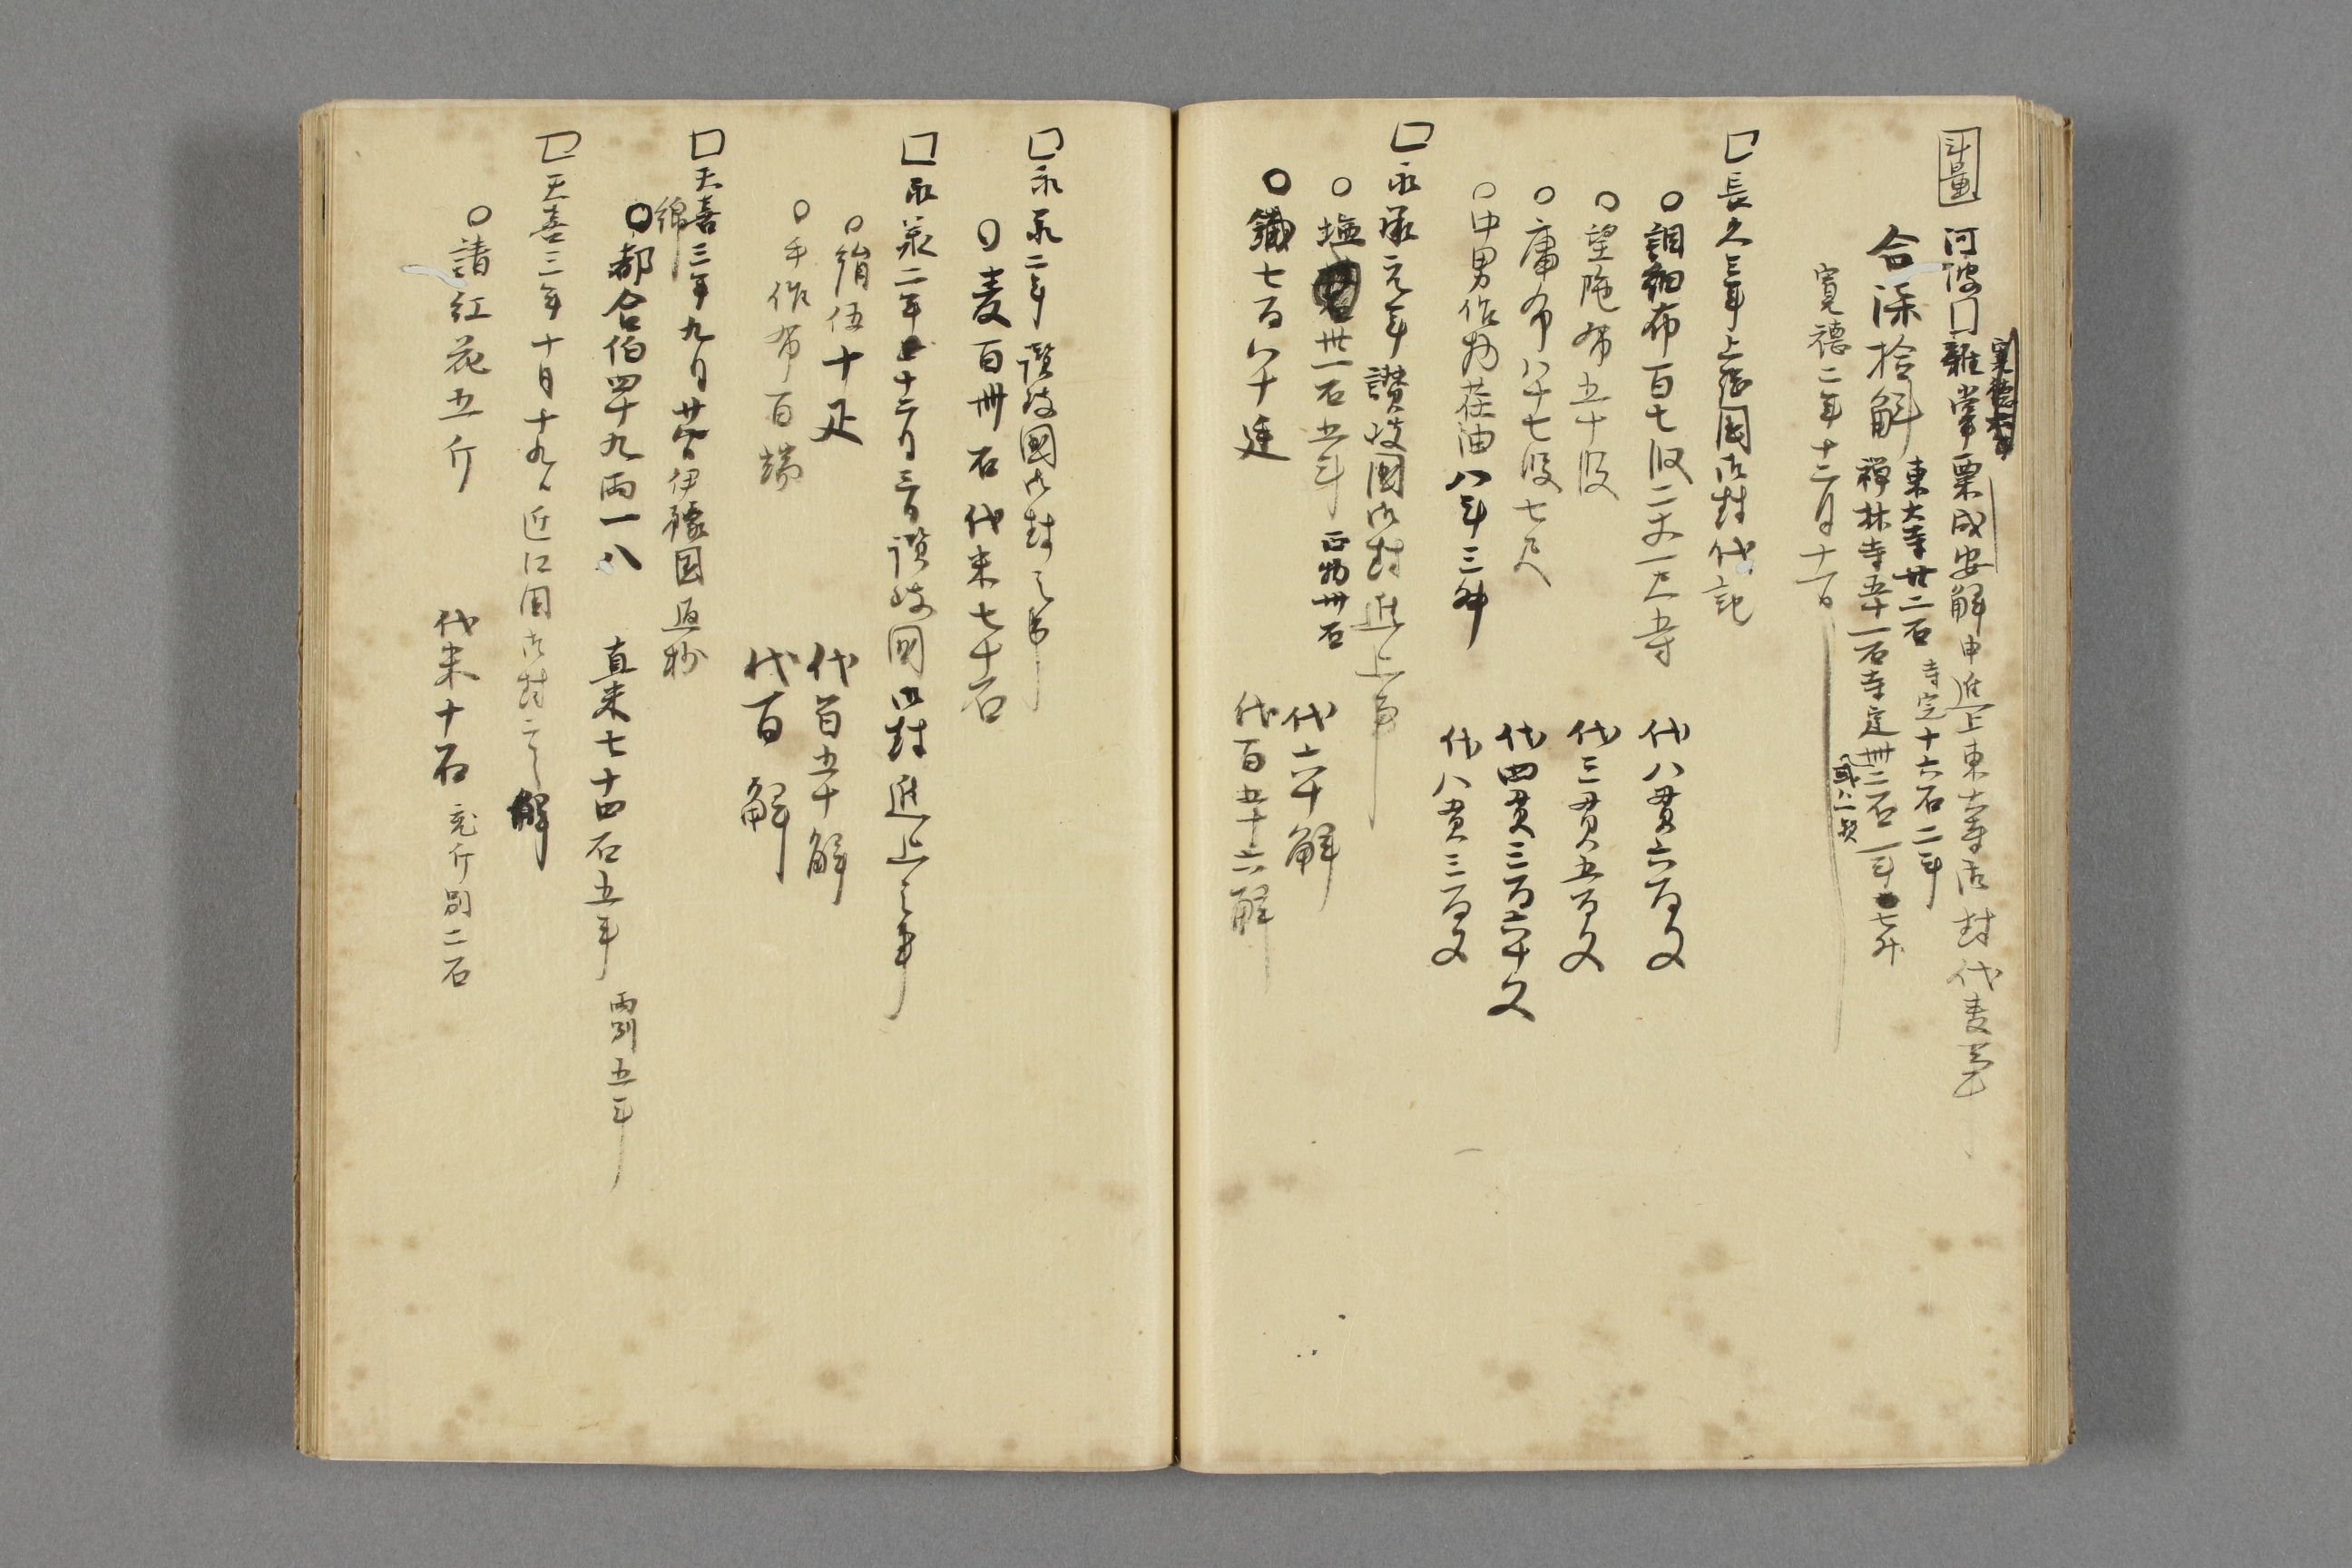 斗量
阿波国雑掌粟成安解申進上東大寺御封代麦等
合漆拾斛 東大寺廿二石 寺定十六石二斗
禅林寺五十一石寺定卌二石一斗七升
寛徳二年十二月十一日
長久三年上総国御封代記
調細布百七段二丈一尺五寸 代八貫六百文
望陁布五十段 代三貫五百文
庸布八十七段七尺 代四貫三百六十文
中男作物荏油八斗三升 代八貫三百文
永承元年讃岐国御封進上事
塩卅一石五斗 正物卅石 代六十斛
鐵七百八十廷 代百五十六斛
永承二年讃岐國御封之事
麦百卌石代米七十石
永承二年十二月三日讃岐國御封進上之事
絹伍十疋 代百五十斛
手作布百端 代百斛
天喜三年九月廿日伊豫国返抄
綿
都合伯四十九兩一分 直米七十四石五斗 兩別五斗
天喜三年十月十九日近江国御封之解
請紅花五斤 代米十石 充斤別二石